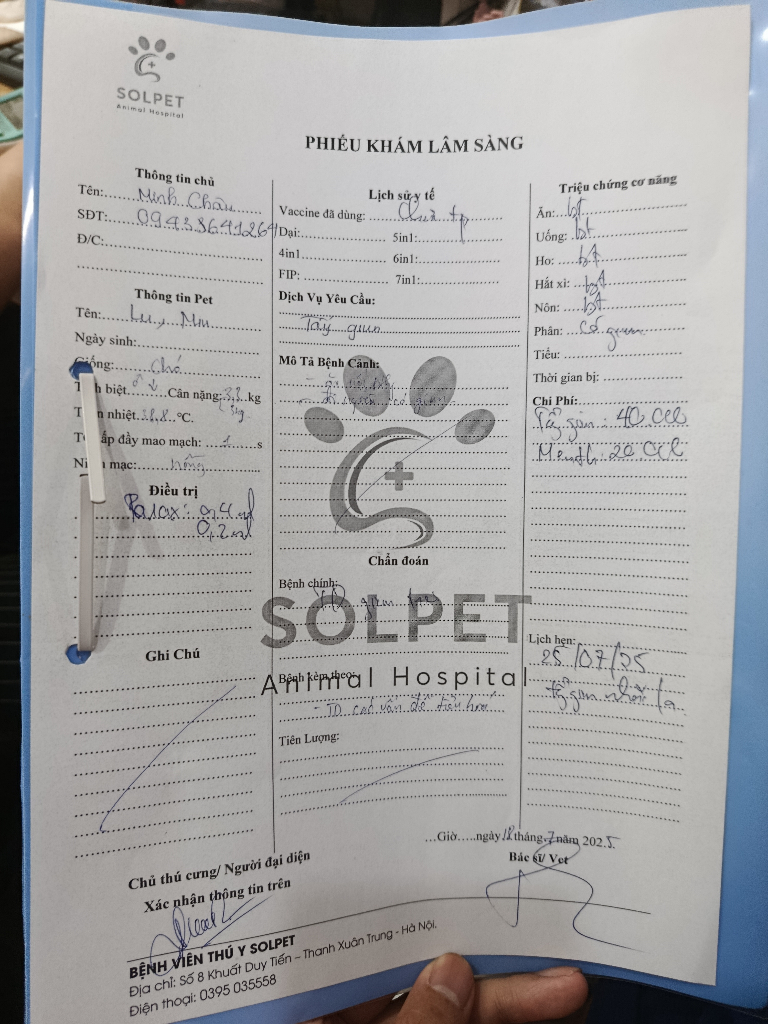 SOLPET
Animal Hospital
PHIẾU KHÁM LÂM SÀNG
Thông tin chủ
Tên: Minh Châu
SĐT: 0943364126
Đ/C:
Thông tin Pet
Tên: Lu, Mu
Ngày sinh:
Giống: Chó
biệt ♂ Cân nặng: 3,3 kg
3kg
nhiệt 38,8 °C.
ấp đầy mao mạch: 1 s
mạc: hồng
Điều trị
0,4 ml
0,2 ml
Ghi Chú
Lịch sử y tế
Vaccine đã dùng: Chưa tp
Dại: 5in1:
4in1 6in1:
FIP: 7in1:
Dịch Vụ Yêu Cầu:
Tẩy giun
Mô Tả Bệnh Cảnh:
Chẩn đoán
Bệnh chính:
SOLPET
Animal Hospital
Bệnh kèm theo:
- TD các vấn đề tiêu hoá
Tiên Lượng:
Triệu chứng cơ năng
Ăn: bt
Uống: bt
Ho: bt
Hắt xì: bt
Nôn: bt
Phân: Có giun
Tiểu:
Thời gian bị:
Chi Phí:
Tẩy giun: 40.000
20.000
Lịch hẹn:
25/07/25
tẩy giun nhắc lại
...Giờ.....ngày 18 tháng 7 năm 2025
Chủ thú cưng/ Người đại diện
Xác nhận thông tin trên
Bác sĩ/ Vet
BỆNH VIỆN THÚ Y SOLPET
Địa chỉ: Số 8 Khuất Duy Tiến – Thanh Xuân Trung - Hà Nội.
Điện thoại: 0395 035558